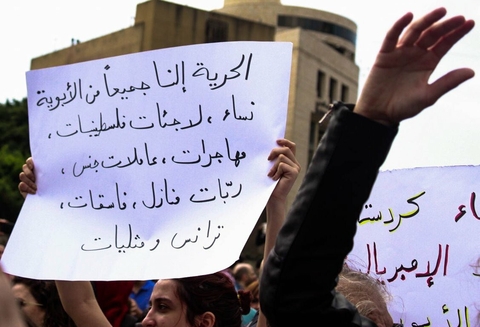 الحرية إلنا جميعاً من الأبوية
نساء ، لاجئات فلسطينيات،
مهاجرات ، عاملات جنس ،
ربّات منازل ، فاسقات ،
ترانس و مثليات
كردستا
الإمبريال